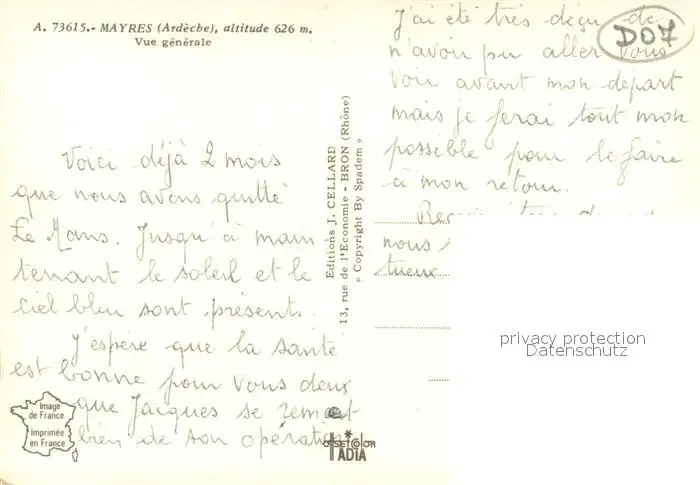 A. 73615.- MAYRES (Ardèche), altitude 626 m.
Vue générale
Voici déjà 2 mois
que nous avons quitté
Le Mans. Jusqu'à main
tenant le soleil et le
ciel bleu sont présents.
J'espère que la santé
est bonne pour vous deux
que Jacques se remet
bien de son opération
J'ai été très déçu de
n'avoir pu aller vous
voir avant mon départ
mais je ferai tout mon
possible pour le faire
à mon retour.
nous
tueux
D07
Editions J. CELLARD
13, rue de l'Economie - BRON (Rhône)
« Copyright By Spadem »
Image
de France
Imprimée
en France
OFFSET COLOR
ADIA
privacy protection
Datenschutz